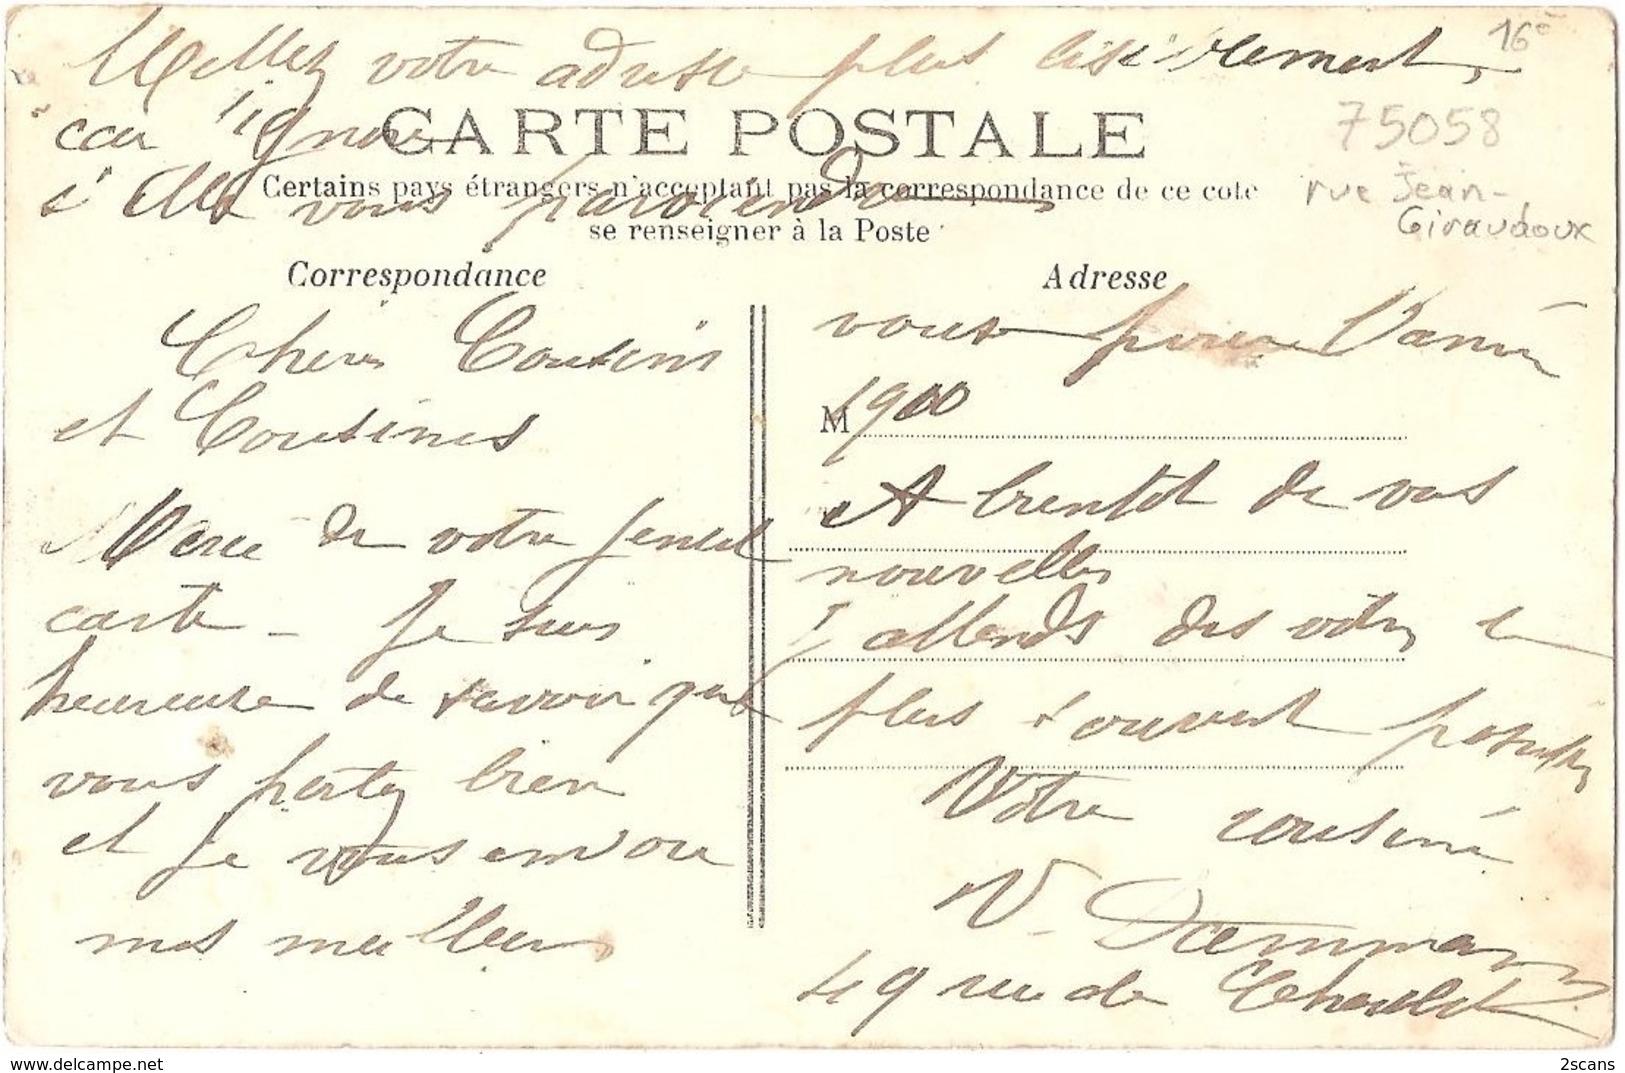 Mettez votre adresse plus lisiblement,
16e
car j'ignore
CARTE POSTALE
75058
si elles vous parviendront
Certains pays étrangers n'acceptant pas la correspondance de ce côté
rue Jean-
Giraudoux
se renseigner à la Poste
Correspondance
Chers Cousins
et Cousines
Merci de votre gentil
carte - Je suis
heureuse de savoir que
vous portez bien
et je vous envoie
mes meilleurs
Adresse
vous pour l'année
M 1900
A bientot de vos
nouvelles
J'attends des votres le
plus souvent possible
Votre cousine
V. Dammann
49 rue de Chaillot
2scans